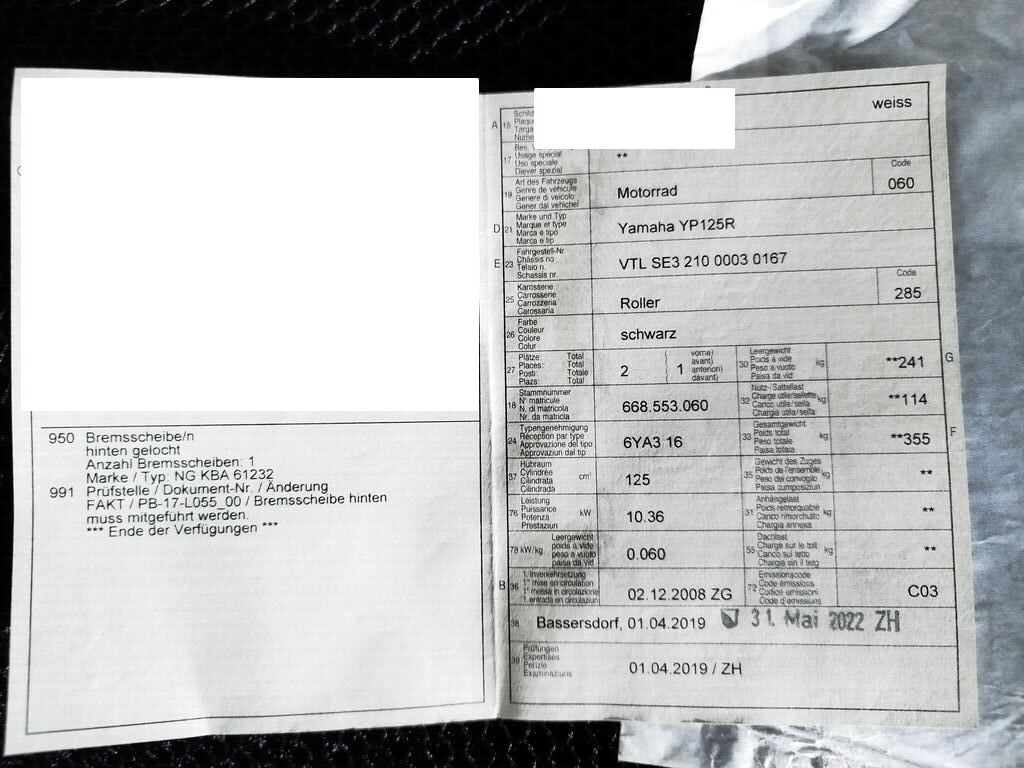 950 Bremsscheibe/n
hinten gelocht
Anzahl Bremsscheiben: 1
Marke / Typ: NG KBA 61232
991 Prüfstelle / Dokument-Nr. / Änderung
FAKT / PB-17-L055_00 / Bremsscheibe hinten
muss mitgeführt werden.
*** Ende der Verfügungen ***
A 15 weiss
17 Usage spécial
Uso speciale
Diever spezial
**
19 Art des Fahrzeugs
Genre de véhicule
Genere di veicolo
Gener dal vehichel
Motorrad
Code
060
D 21 Marke und Typ
Marque et type
Marca e tipo
Marca e tip
Yamaha YP125R
E 23 Fahrgestell-Nr.
Châssis no
Telaio n.
Schassis nr.
VTL SE3 210 0003 0167
25 Karosserie
Carrosserie
Carrozzeria
Carossaria
Roller
Code
285
26 Farbe
Couleur
Colore
Colur
schwarz
27 Plätze: Total
Places: Total
Posti: Totale
Plazs: Total
2
( vorne)
( avant)
1 anterion)
( davant)
30 Leergewicht
Poids à vide
Peso a vuoto
Paisa da vid
kg
**241
G
18 Stammnummer
N° matricule
N. di matricola
Nr. da matricla
668.553.060
32 Nutz-/Sattellast
Charge utile/sellette
Carico utile/sella
Chargia utila/sella
kg
**114
24 Typengenehmigung
Réception par type
Approvazione del tipo
Approvaziun dal tip
6YA3 16
33 Gesamtgewicht
Poids total
Peso totale
Paisa totala
kg
**355
F
37 Hubraum
Cylindrée
Cilindrata
Cilindrada
cm³
125
35 Gewicht des Zuges
Poids de l'ensemble
Peso del convoglio
Paisa cumposiziun
**
76 Leistung
Puissance
Potenza
Prestaziun
kW
10.36
31 Anhängelast
Poids remorquable
Carico rimorchiato
Chargia annexa
**
78 kW/kg Leergewicht
poids à vide
peso a vuoto
paisa da vid
0.060
55 Dachlast
Charge sur le toit
Carico sul tetto
Chargia sin il tetg
kg
**
B 36 1. Inverkehrsetzung
1re mise en circulation
1a messa in circolazione
1. entrada en circulaziun
02.12.2008 ZG
72 Emissionscode
Code émissions
Codice emissioni
Code d'emissiuns
C03
38 Bassersdorf, 01.04.2019 31. Mai 2022 ZH
39 Prüfungen
Expertises
Perizie
Examinaziuns
01.04.2019 / ZH